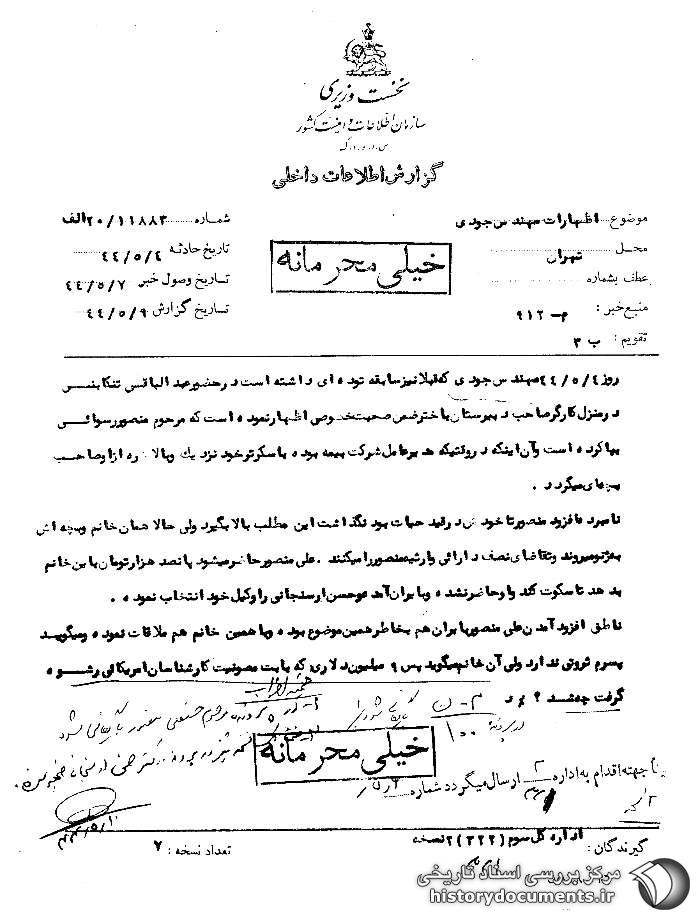 نخست وزیری
سازمان اطلاعات و امنیت کشور
س.ا.و.ا.ک
گزارش اطلاعات داخلی
موضوع اظهارات مهندس جودی
شماره ۲۰/۱۱۸۸۳الف
محل تهران
تاریخ حادثه ۴۴/۵/۴
خیلی محرمانه
عطف بشماره
تاریخ وصول خبر ۴۴/۵/۷
منبع خبر : ۹۱۲
تاریخ گزارش ۴۴/۵/۹
تقویم : ب ۳
روز ۴۴/۵/۴ مهندس جودی که قبلا نیز سابقه توده ای داشته است در حضور عبدالباقی تنکابنی
در منزل کارگر صاحب دبیرستان باختر ضمن صحبت خصوصی اظهار نموده است که مرحوم منصور رسوائی
بپا کرده است و آن اینکه در وقتیکه مدیر عامل شرکت بیمه بوده با سکرتر خود نزدیک و بالاخره از او صاحب
بچه ای میگردد .
نامبرده افزود منصور تا خودش در قید حیات بود نگذاشت این مطلب بالا بگیرد ولی حالا همان خانم و بچه اش
به ژنو میروند و تقاضای نصف دارائی وارثیه منصور را میکنند . علی منصور حاضر میشود پانصد هزار تومان باین خانم
بدهد تا سکوت کند و او حاضر نشده و بایران آمده و حسن ارسنجانی را وکیل خود انتخاب نموده .
ناطق افزود آمدن علی منصور بایران هم بخاطر همین موضوع بوده و با همین خانم هم ملاقات نموده و میگوید
پسرم ثروتی ندارد ولی آن خانم میگوید پس ۹ میلیون دلاری که بابت مصونیت کارشناسان امریکائی رشوه
گرفت چه شد ؟
بایگانی شود
در پرونده ۱۰۰
خیلی محرمانه
جهت اقدام به اداره ارسال میگردد شماره
گیرندگان : اداره کل سوم (۳۲۲) ۲ نسخه
تعداد نسخه : ۷
مرکز بررسی اسناد تاریخی
historydocuments.ir